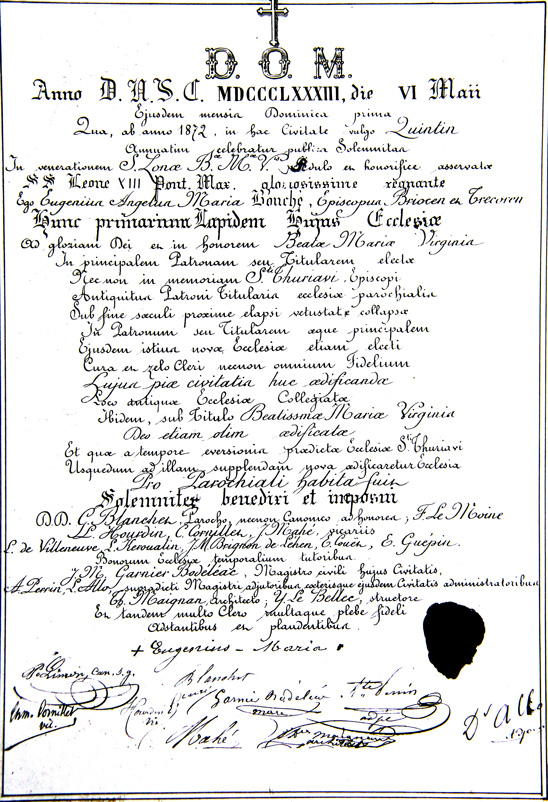 D. O. M.
Anno D. N. S. C. MDCCCLXXXIII, die VI Maii
Ejusdem mensis Dominica prima
Qua, ab anno 1872, in hac Civitate vulgo Quintin
Annuatim celebratur publica Solemnitas
In venerationem S. Zonæ Bæ. Mæ. Vis. sedulo et honorifice asservatæ
SS. Leone XIII Pont. Max. gloriosissime regnante
Ego Eugenius Angelus Maria Bouché, Episcopus Briocen et Trecoren
Hunc primarium Lapidem Hujus Ecclesiæ
Ad gloriam Dei et in honorem Beatæ Mariæ Virginis
In principalem Patronam seu Titularem electæ
Nec non in memoriam Sti Thuriavi, Episcopi
Antiquitus Patroni Titularis ecclesiæ parochialis
Sub fine sæculi proxime elapsi vetustate collapsæ
In Patronum seu Titularem æque principalem
Ejusdem istius novæ Ecclesiæ etiam electi
Cura et zelo Cleri necnon omnium Fidelium
Hujus piæ civitatis huc ædificandæ
Loco antiquæ Ecclesiæ Collegiatæ
Ibidem, sub Titulo Beatissimæ Mariæ Virginis
Deo etiam olim ædificatæ
Et quæ a tempore eversionis prædictæ Ecclesiæ Sti Thuriavi
Usquedum ad illam supplendam nova ædificaretur Ecclesia
Pro Parochiali habita fuit
Solemniter benedixi et imposui
D.D. G. Blanchet, Parocho, necnon Canonico ad honores, F. Le Moine
L. Hourdin, C. Cornillet, J. Mahé, vicariis
L. de Villeneuve, Y. Hervualin, J.M. Brignon de Lehen, E. Couën, E. Guépin.
Bonorum Ecclesiæ temporalium tutoribus
J. M. Garnier Bodéléac, Magistro civili hujus Civitatis,
A. Perrin, L. Allo, supradicti Magistri adjutoribus cæterisque ejusdem Civitatis administratoribus
Th. Maignan, Architecto, Y. Le Bellec, structore
Et tandem multo Clero multaque plebe fideli
Adstantibus et plaudentibus.
+ Eugenius - Maria
can. s.g.
Blanchet
Garnier Bodéléac
maire
Perrin
adjt
Em. Cornillet
vic.
Hourdin
vic
J. Mahé
architecte
Dr Allo